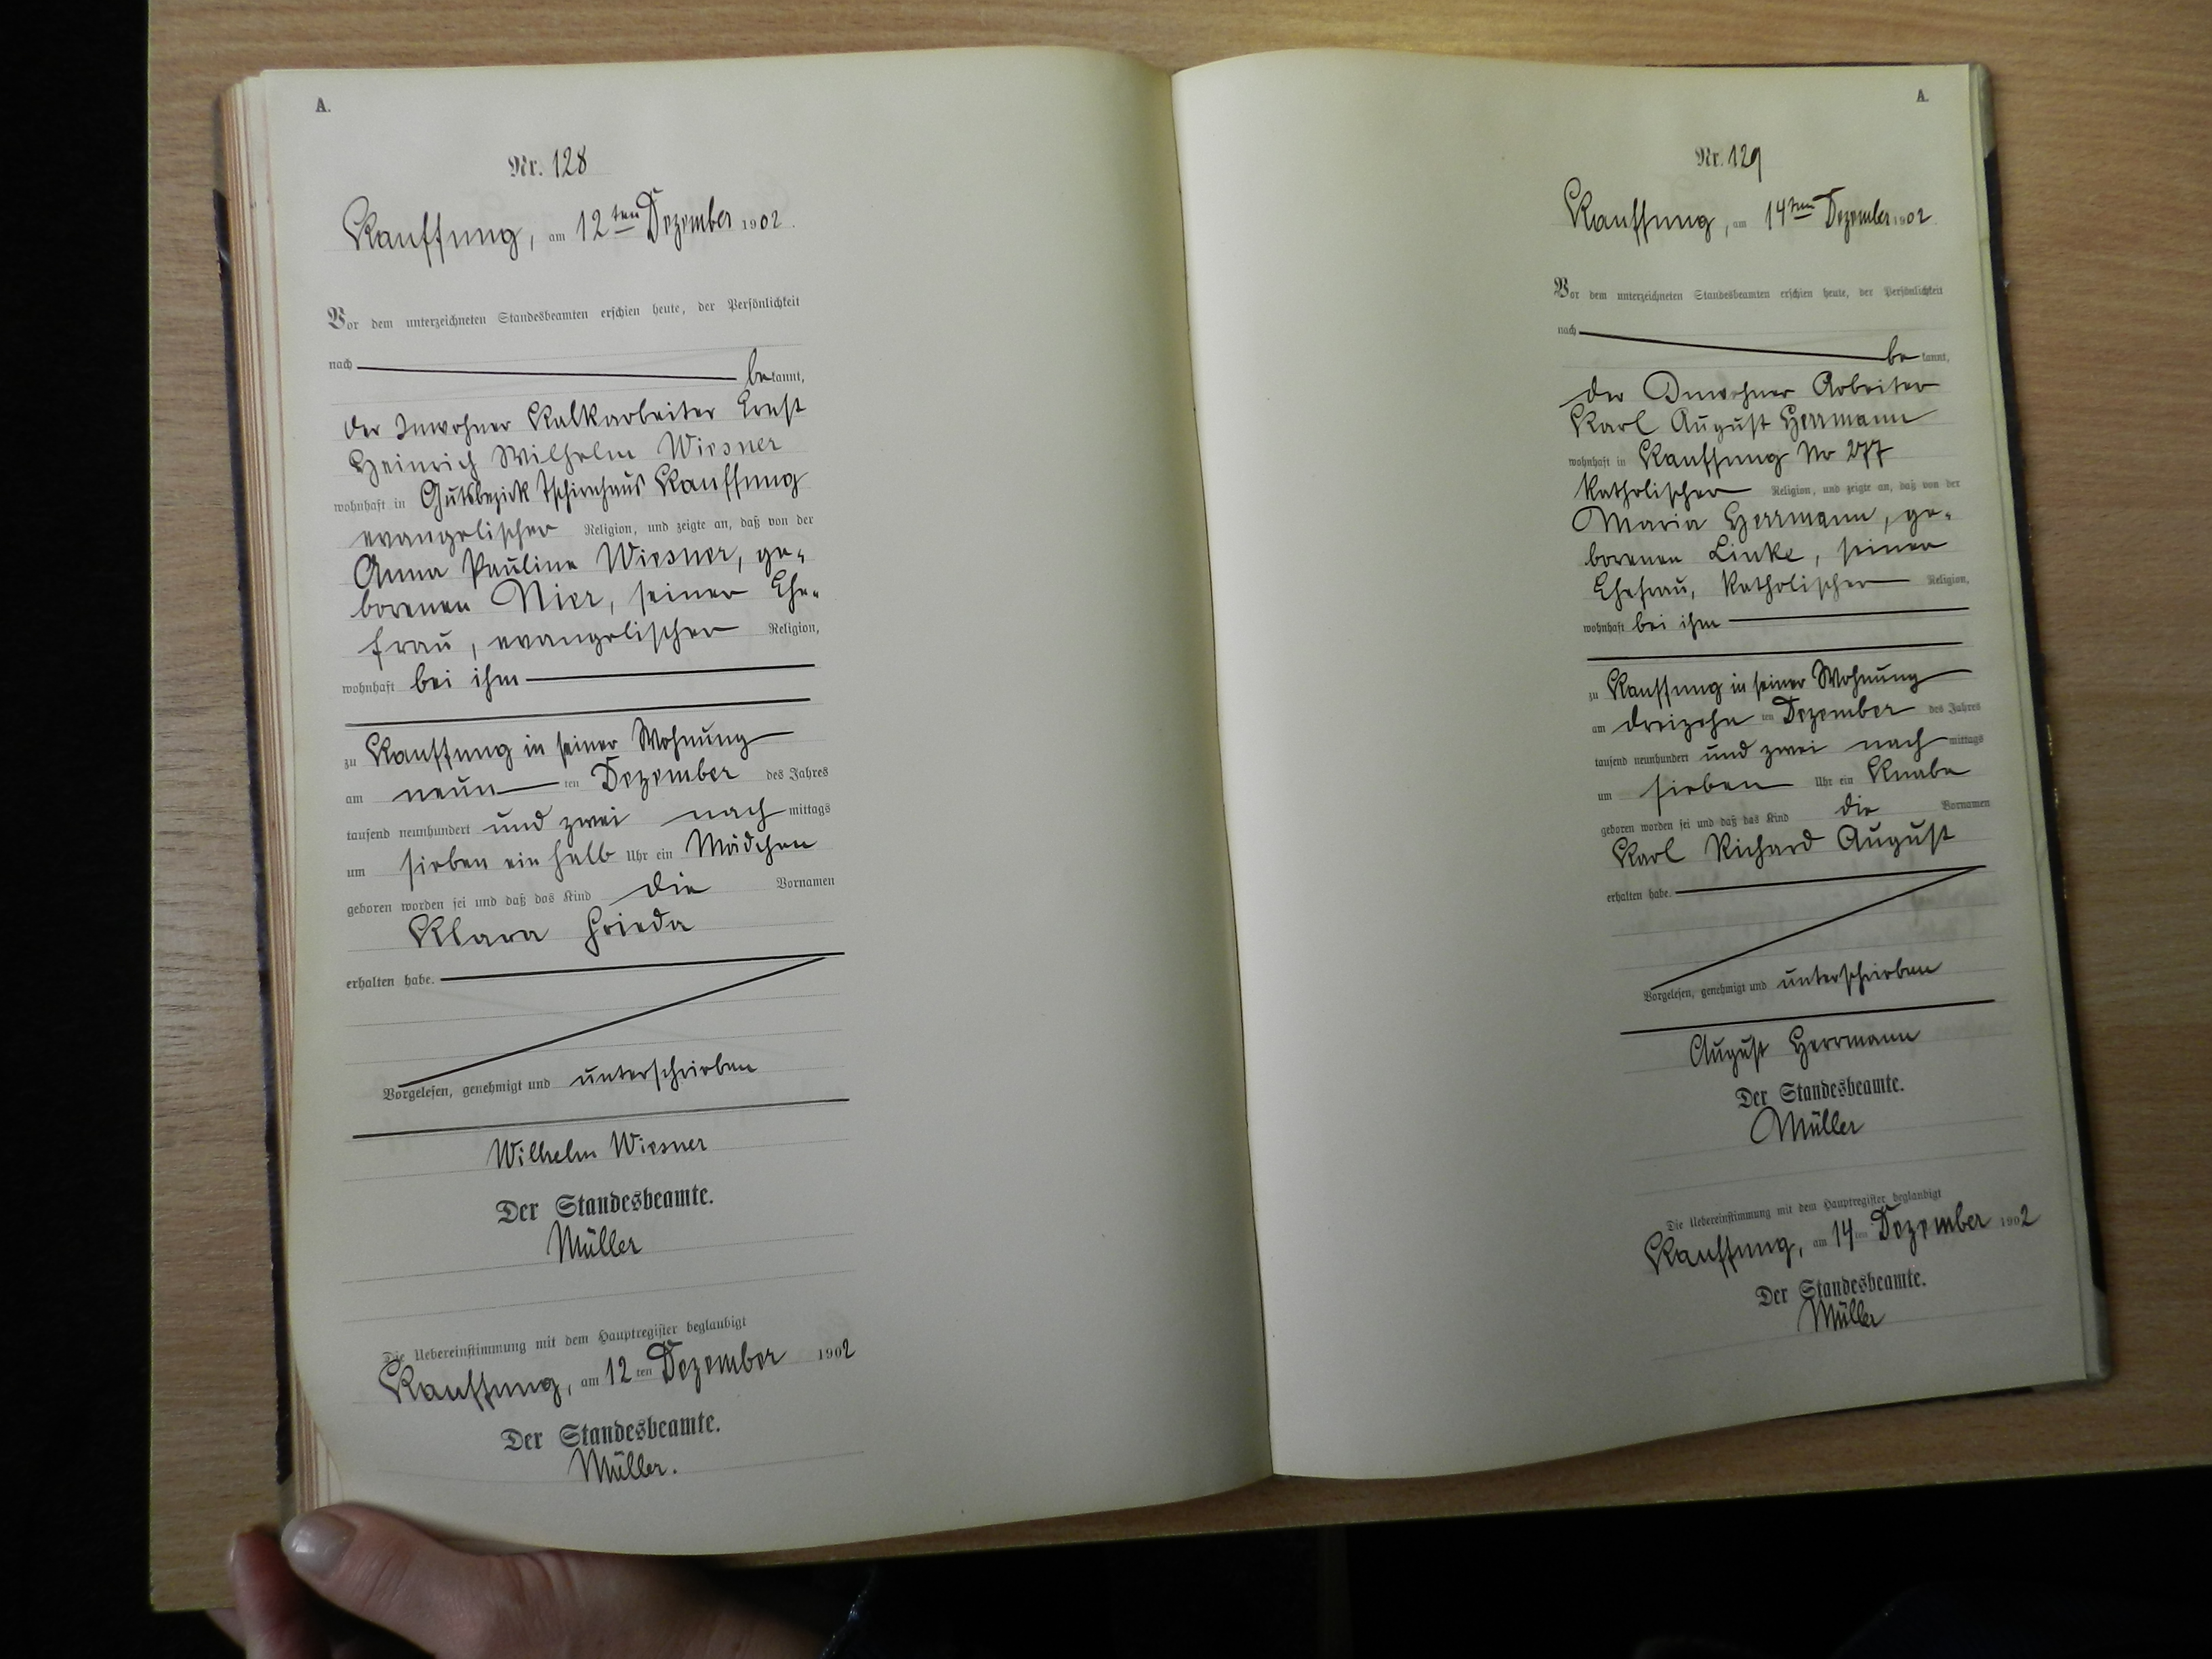 A.
Nr. 128
Kauffung, am 12ten Dezember 1902.
Vor dem unterzeichneten Standesbeamten erschien heute, der Persönlichkeit
nach be kannt,
der Inwohner Kalkarbeiter Ernst
Heinrich Wilhelm Wiesner
wohnhaft in Gutsbezirk Tschirnhaus Kauffung
evangelischer Religion, und zeigte an, daß von der
Anna Pauline Wiesner, ge-
borenen Nier, seiner Ehe-
frau, evangelischer Religion,
wohnhaft bei ihm
zu Kauffung in seiner Wohnung
am neun ten Dezember des Jahres
tausend neunhundert und zwei nach mittags
um sieben ein halb Uhr ein Mädchen
geboren worden sei und daß das Kind die Vornamen
Klara Frieda
erhalten habe.
Vorgelesen, genehmigt und unterschrieben
Wilhelm Wiesner
Der Standesbeamte.
Müller
Die Uebereinstimmung mit dem Hauptregister beglaubigt
Kauffung, am 12 ten Dezember 1902
Der Standesbeamte.
Müller.
A.
Nr. 129
Kauffung, am 14ten Dezember 1902
Vor dem unterzeichneten Standesbeamten erschien heute, der Persönlichkeit
nach be kannt,
der Inwohner Arbeiter
Karl August Herrmann
wohnhaft in Kauffung No 277
katholischer Religion, und zeigte an, daß von der
Maria Herrmann, ge-
borenen Linke, seiner
Ehefrau, katholischer Religion,
wohnhaft bei ihm
zu Kauffung in seiner Wohnung
am dreizehn ten Dezember des Jahres
tausend neunhundert und zwei nach mittags
um sieben Uhr ein Knabe
geboren worden sei und daß das Kind die Vornamen
Karl Richard August
erhalten habe.
Vorgelesen, genehmigt und unterschrieben
August Herrmann
Der Standesbeamte.
Müller
Die Uebereinstimmung mit dem Hauptregister beglaubigt
Kauffung, am 14 ten Dezember 1902
Der Standesbeamte.
Müller